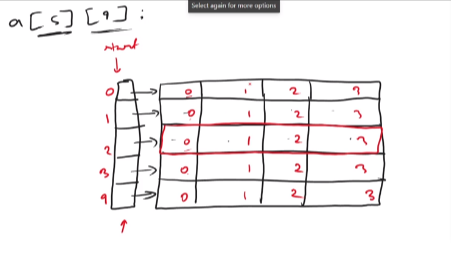 Select again for more options
a[5][4]:
start
0 0 1 2 3
1 0 1 2 3
2 0 1 2 3
3 0 1 2 3
4 0 1 2 3